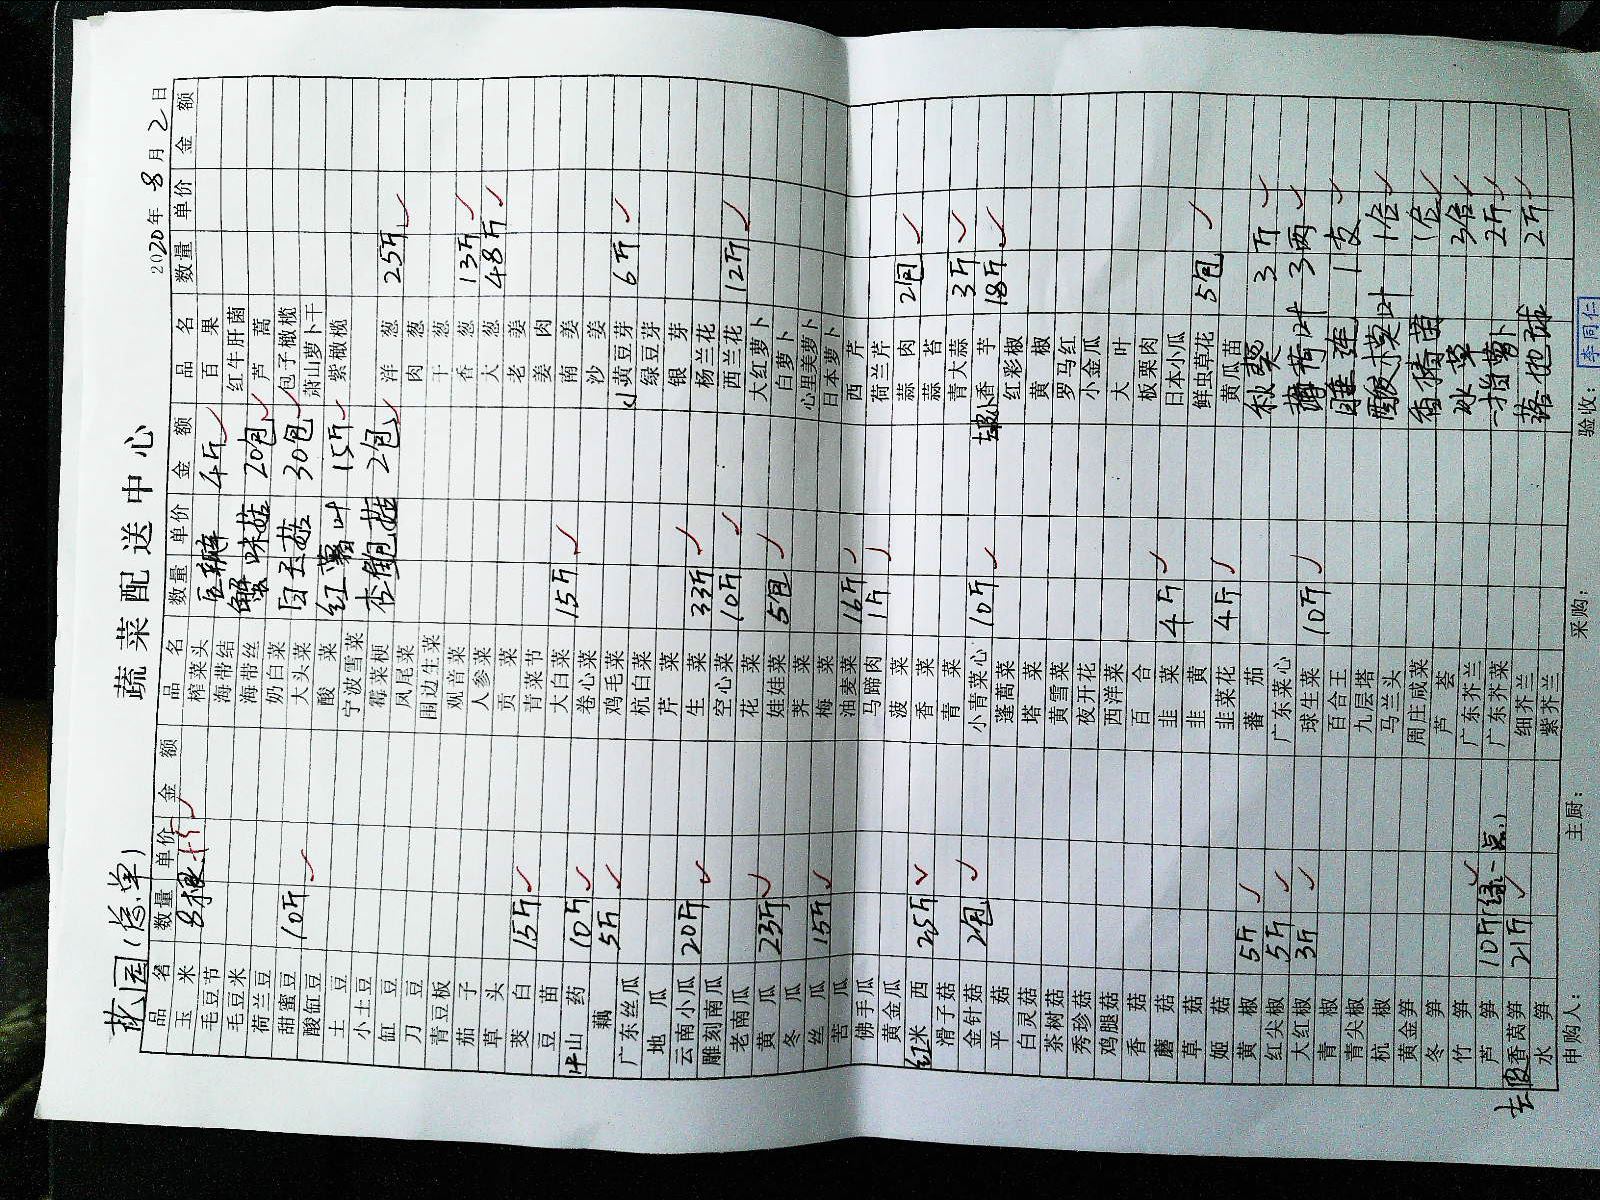 花园(总单)
蔬菜配送中心
2020年8月2日
品名 数量 单价 金额 品名 数量 单价 金额 品名 数量 单价 金额
玉米 8根 榨菜头 豆瓣 4斤 百果
毛豆节 海带结 红牛肝菌
毛豆米 海带丝 蟹味菇 20包 芦蒿
荷兰豆 奶白菜 白玉菇 30包 包子橄榄
甜蜜豆 10斤 大头菜 萧山萝卜干
酸缸豆 酸菜 红薯叶 15斤 紫橄榄
土豆 宁波雪菜
小土豆 霉菜梗 杏鲍菇 2包 洋葱 25斤
缸豆 凤尾菜 肉葱
刀豆 围边生菜 干葱
青豆板 观音菜 香葱 13斤
茄子 人参菜 大葱 48斤
草头 贡菜 老姜
茭白 15斤 青菜节 姜肉
豆苗 大白菜 15斤 南姜
山药 10斤 卷心菜 沙姜
藕 5斤 鸡毛菜 黄豆芽 6斤
广东丝瓜 杭白菜 绿豆芽
地瓜 芹菜 银芽
云南小瓜 20斤 生菜 33斤 杨兰花
雕刻南瓜 空心菜 10斤 西兰花 12斤
老南瓜 花菜 大红萝卜
黄瓜 23斤 娃娃菜 5包 白萝卜
冬瓜 荠菜 心里美萝卜
丝瓜 15斤 梅菜 日本萝卜
苦瓜 油麦菜 16斤 西芹
佛手瓜 马蹄肉 1斤 荷兰芹
黄金瓜 菠菜 蒜肉 2包
红米西 25斤 香菜 蒜苔
滑子菇 青菜 青大蒜 3斤
金针菇 2包 小青菜心 10斤 去皮香芋 18斤
平菇 蓬蒿菜 红彩椒
白灵菇 塔菜 黄椒
茶树菇 黄雪菜 罗马红
秀珍菇 夜开花 小金瓜
鸡腿菇 西洋菜 大叶
香菇 百合 板栗肉
蘑菇 韭菜 4斤 日本小瓜
草菇 韭黄 鲜虫草花 5包
姬菇 韭菜花 4斤 黄瓜苗
黄椒 5斤 蕃茄 秋葵 3斤
红尖椒 5斤 广东菜心 薄荷叶 3两
大红椒 3斤 球生菜 10斤
青椒 百合王 睡莲 1支
青尖椒 九层塔
杭椒 马兰头 1包
黄金笋 周庄咸菜 香椿苗 1盒
冬笋 芦荟 3盒
竹笋 广东芥兰
芦笋 10斤(绿一点) 广东芥菜 2斤
去皮香莴笋 21斤 细芥兰 2斤
水笋 紫芥兰
申购人: 主厨: 采购: 验收: 李同仁